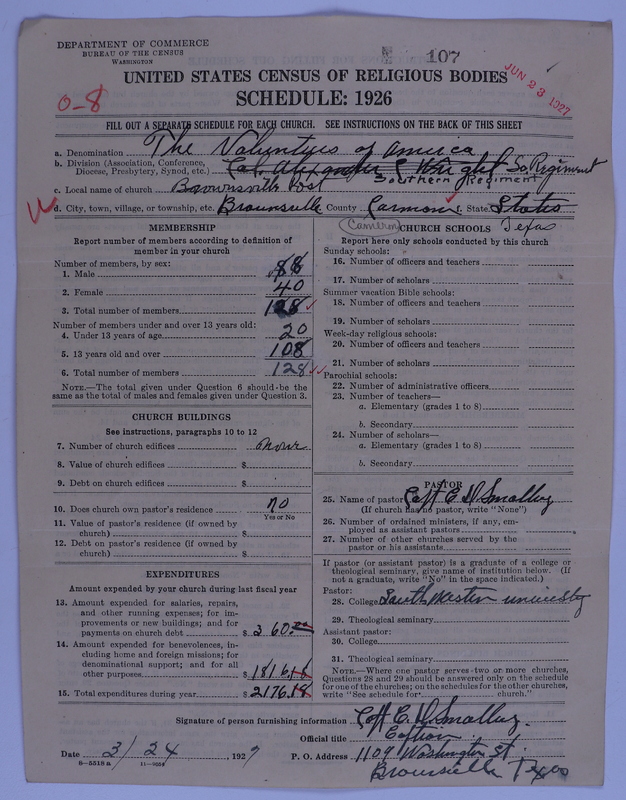 DEPARTMENT OF COMMERCE
BUREAU OF THE CENSUS
WASHINGTON
107
JUN 23 1927
UNITED STATES CENSUS OF RELIGIOUS BODIES
SCHEDULE: 1926
0-8
FILL OUT A SEPARATE SCHEDULE FOR EACH CHURCH. SEE INSTRUCTIONS ON THE BACK OF THIS SHEET
a. Denomination The Voluntyes of America
b. Division (Association, Conference, Diocese, Presbytery, Synod, etc.) Col. Alexander C Wright So. Regiment
Southern Regiment
c. Local name of church Brownsville Post
d. City, town, village, or township, etc. Brounsville County Carmon f. State States
Cameron Texas
MEMBERSHIP
Report number of members according to definition of member in your church
Number of members, by sex:
1. Male 88
2. Female 40
3. Total number of members 128
Number of members under and over 13 years old:
4. Under 13 years of age 20
5. 13 years old and over 108
6. Total number of members 128
NOTE.—The total given under Question 6 should be the same as the total of males and females given under Question 3.
CHURCH BUILDINGS
See instructions, paragraphs 10 to 12
7. Number of church edifices none
8. Value of church edifices $
9. Debt on church edifices $
10. Does church own pastor's residence? no
Yes or No
11. Value of pastor's residence (if owned by church) $
12. Debt on pastor's residence (if owned by church) $
EXPENDITURES
Amount expended by your church during last fiscal year
13. Amount expended for salaries, repairs, and other running expenses; for improvements or new buildings; and for payments on church debt $ 360.00
14. Amount expended for benevolences, including home and foreign missions; for denominational support; and for all other purposes $ 1816.18
15. Total expenditures during year $ 2176.18
CHURCH SCHOOLS
Report here only schools conducted by this church
Sunday schools:
16. Number of officers and teachers
17. Number of scholars
Summer vacation Bible schools:
18. Number of officers and teachers
19. Number of scholars
Week-day religious schools:
20. Number of officers and teachers
21. Number of scholars
Parochial schools:
22. Number of administrative officers
23. Number of teachers—
a. Elementary (grades 1 to 8)
b. Secondary
24. Number of scholars—
a. Elementary (grades 1 to 8)
b. Secondary
PASTOR
25. Name of pastor Capt E D Smalling
(If church has no pastor, write "None")
26. Number of ordained ministers, if any, employed as assistant pastors
27. Number of other churches served by the pastor or his assistants
If pastor (or assistant pastor) is a graduate of a college or theological seminary, give name of institution below. (If not a graduate, write "No" in the space indicated.)
Pastor:
28. College South Western univesity
29. Theological seminary
Assistant pastor:
30. College
31. Theological seminary
NOTE.—Where one pastor serves two or more churches, Questions 28 and 29 should be answered only on the schedule for one of the churches; on the schedules for the other churches, write "See schedule for church."
Signature of person furnishing information Capt E D Smalling.
Official title Captian
Date 3/24, 1927 P. O. Address 1109 Washington St.
8—5518 a Brounsville Texas